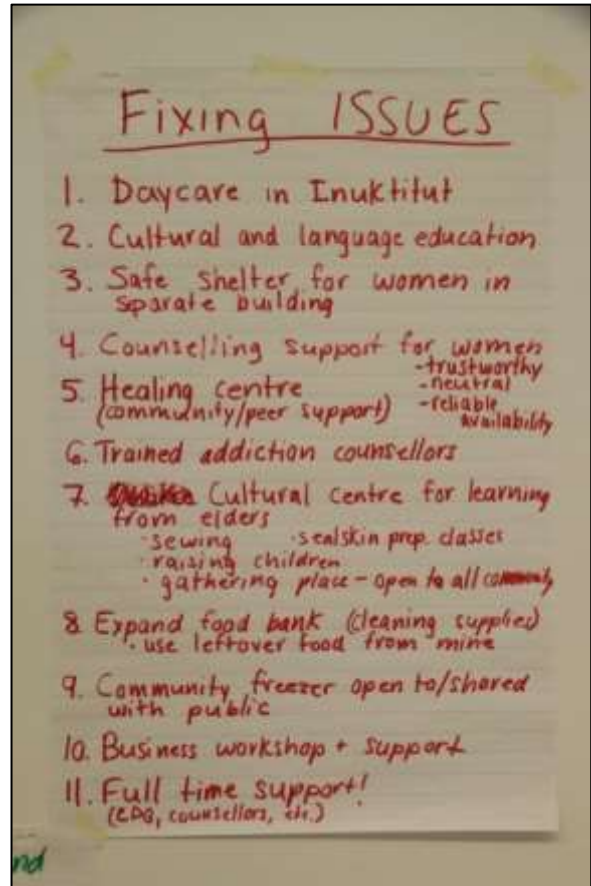 Fixing ISSUES
1. Daycare in Inuktitut
2. Cultural and language education
3. Safe shelter for women in
sparate building
4. Counselling support for women
-trustworthy
-neutral
-reliable
availability
5. Healing centre
(community/peer support)
6. Trained addiction counsellors
7. Cultural centre for learning
from elders
· sewing · sealskin prep. classes
· raising children
· gathering place - open to all
8. Expand food bank (cleaning supplies)
· use leftover food from mine
9. Community freezer open to/shared
with public
10. Business workshop + support
11. Full time support!
(counsellors, etc.)
nd